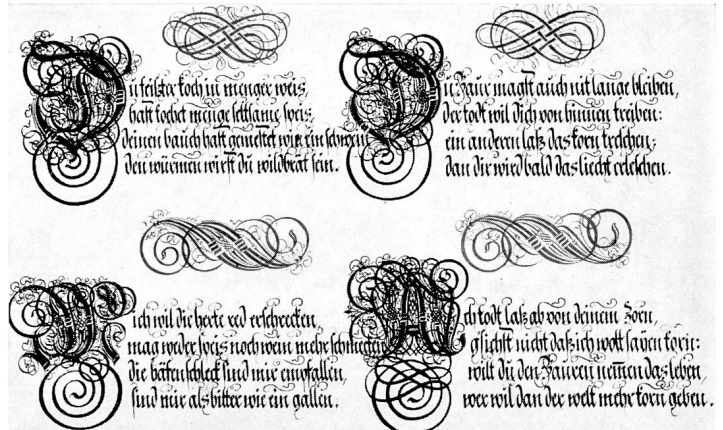 Du feister koch in menger weis,
hast kochet menge seltzame speis,
deinen bauch hast gemestet wie ein schwein
den würmen wirst du wildbrät sein.
Du Baur magst auch nit lange bleiben,
der todt wil dich von hinnen treiben:
ein anderen laß das korn treschen;
dan dir wird bald das liecht erleschen.
ich wil die herte red erschrecken,
mag weder speis noch wein mehr schmecken
die schleck sind mir empfallen,
sind mir als bitter wie ein gallen.
Ach todt laß ab von deinem Zorn,
gsichst nicht daß ich wolt sayen korn:
wilt du den Bauren nemmen das leben,
wer wil dan der welt mehr korn geben.